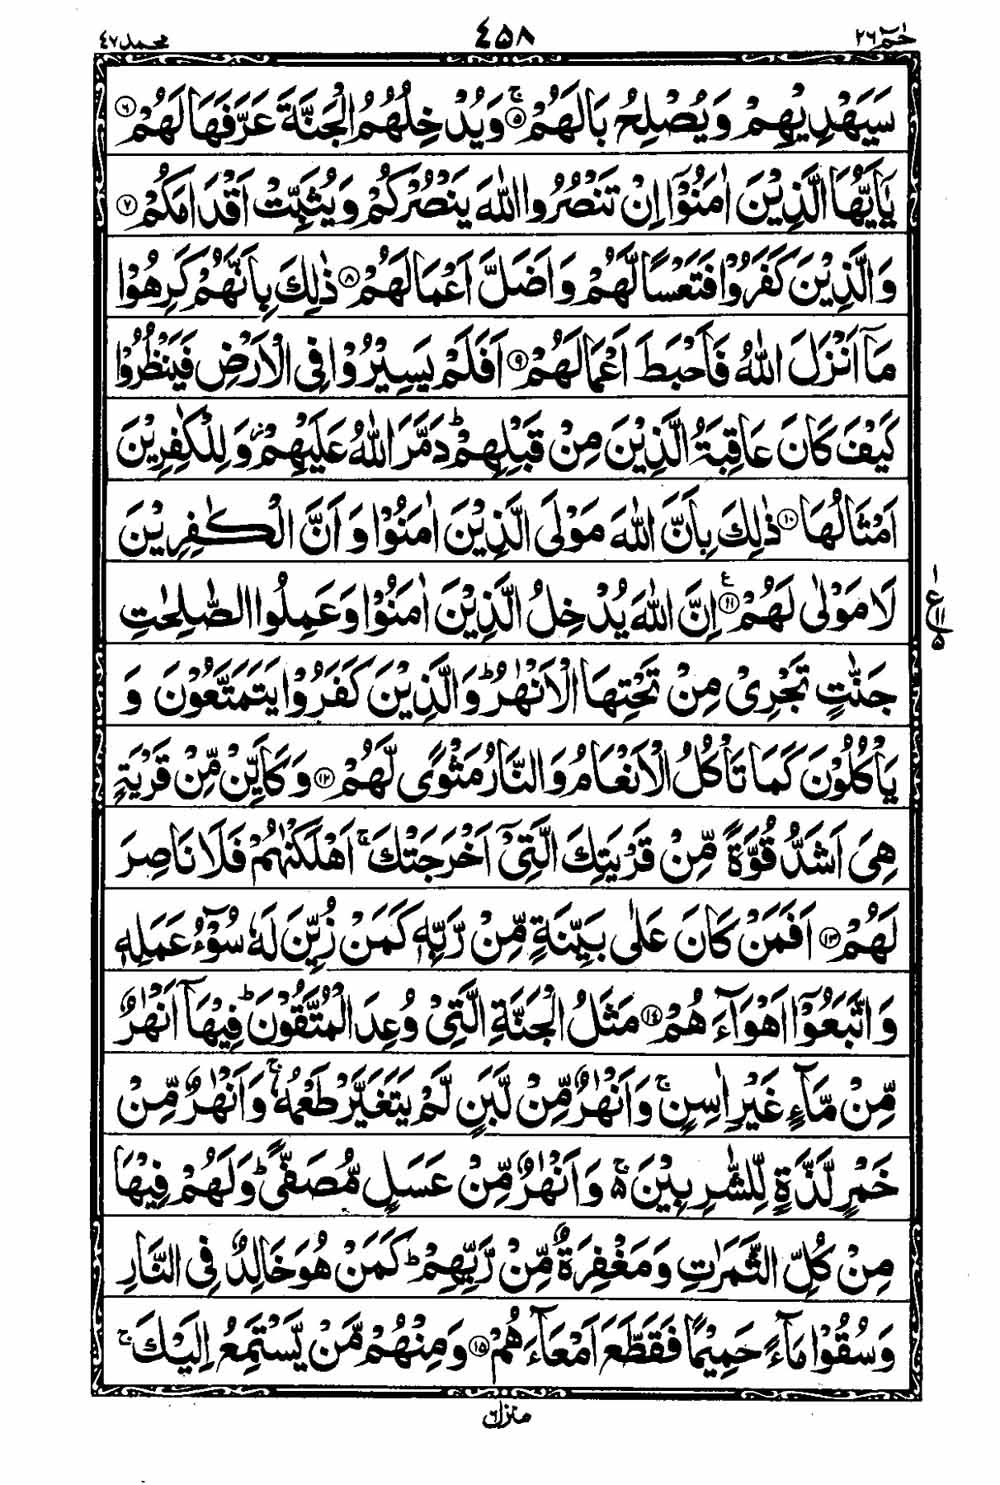 حٰمٓ ٢٦ ٤٥٨ محمد ٤٧
سَيَهْدِيْهِمْ وَيُصْلِحُ بَالَهُمْ ۚ‏﴿۵﴾ وَيُدْخِلُهُمُ الْجَنَّةَ عَرَّفَهَا لَهُمْ ﴿۶﴾
يٰۤاَيُّهَا الَّذِيْنَ اٰمَنُوْۤا اِنْ تَنْصُرُوا اللّٰهَ يَنْصُرْكُمْ وَيُثَبِّتْ اَقْدَامَكُمْ ﴿۷﴾
وَالَّذِيْنَ كَفَرُوْا فَتَعْسًا لَّهُمْ وَاَضَلَّ اَعْمَالَهُمْ ﴿۸﴾ ذٰلِكَ بِاَنَّهُمْ كَرِهُوْا
مَاۤ اَنْزَلَ اللّٰهُ فَاَحْبَطَ اَعْمَالَهُمْ ﴿۹﴾ اَفَلَمْ يَسِيْرُوْا فِى الْاَرْضِ فَيَنْظُرُوْا
كَيْفَ كَانَ عَاقِبَةُ الَّذِيْنَ مِنْ قَبْلِهِمْ ؕ دَمَّرَ اللّٰهُ عَلَيْهِمْ ۫ وَلِلْكٰفِرِيْنَ
اَمْثَالُهَا ﴿۱۰﴾ ذٰلِكَ بِاَنَّ اللّٰهَ مَوْلَى الَّذِيْنَ اٰمَنُوْا وَاَنَّ الْكٰفِرِيْنَ
لَا مَوْلٰى لَهُمْ ﴿۱۱﴾ اِنَّ اللّٰهَ يُدْخِلُ الَّذِيْنَ اٰمَنُوْا وَعَمِلُوا الصّٰلِحٰتِ
جَنّٰتٍ تَجْرِىْ مِنْ تَحْتِهَا الْاَنْهٰرُ ؕ وَالَّذِيْنَ كَفَرُوْا يَتَمَتَّعُوْنَ وَ
يَاْكُلُوْنَ كَمَا تَاْكُلُ الْاَنْعَامُ وَالنَّارُ مَثْوًى لَّهُمْ ﴿۱۲﴾ وَكَاَيِّنْ مِّنْ قَرْيَةٍ
هِىَ اَشَدُّ قُوَّةً مِّنْ قَرْيَتِكَ الَّتِىْۤ اَخْرَجَتْكَ ۚ اَهْلَكْنٰهُمْ فَلَا نَاصِرَ
لَهُمْ ﴿۱۳﴾ اَفَمَنْ كَانَ عَلٰى بَيِّنَةٍ مِّنْ رَّبِّهٖ كَمَنْ زُيِّنَ لَهٗ سُوْٓءُ عَمَلِهٖ
وَاتَّبَعُوْۤا اَهْوَآءَهُمْ ﴿۱۴﴾ مَثَلُ الْجَنَّةِ الَّتِىْ وُعِدَ الْمُتَّقُوْنَ ؕ فِيْهَاۤ اَنْهٰرٌ
مِّنْ مَّآءٍ غَيْرِ اٰسِنٍ ۚ وَاَنْهٰرٌ مِّنْ لَّبَنٍ لَّمْ يَتَغَيَّرْ طَعْمُهٗ ۚ وَاَنْهٰرٌ مِّنْ
خَمْرٍ لَّذَّةٍ لِّلشّٰرِبِيْنَ ۚ۬ وَاَنْهٰرٌ مِّنْ عَسَلٍ مُّصَفًّى ؕ وَلَهُمْ فِيْهَا
مِنْ كُلِّ الثَّمَرٰتِ وَمَغْفِرَةٌ مِّنْ رَّبِّهِمْ ؕ كَمَنْ هُوَ خَالِدٌ فِى النَّارِ
وَسُقُوْا مَآءً حَمِيْمًا فَقَطَّعَ اَمْعَآءَهُمْ ﴿۱۵﴾ وَمِنْهُمْ مَّنْ يَّسْتَمِعُ اِلَيْكَ ۚ
منزل ٦